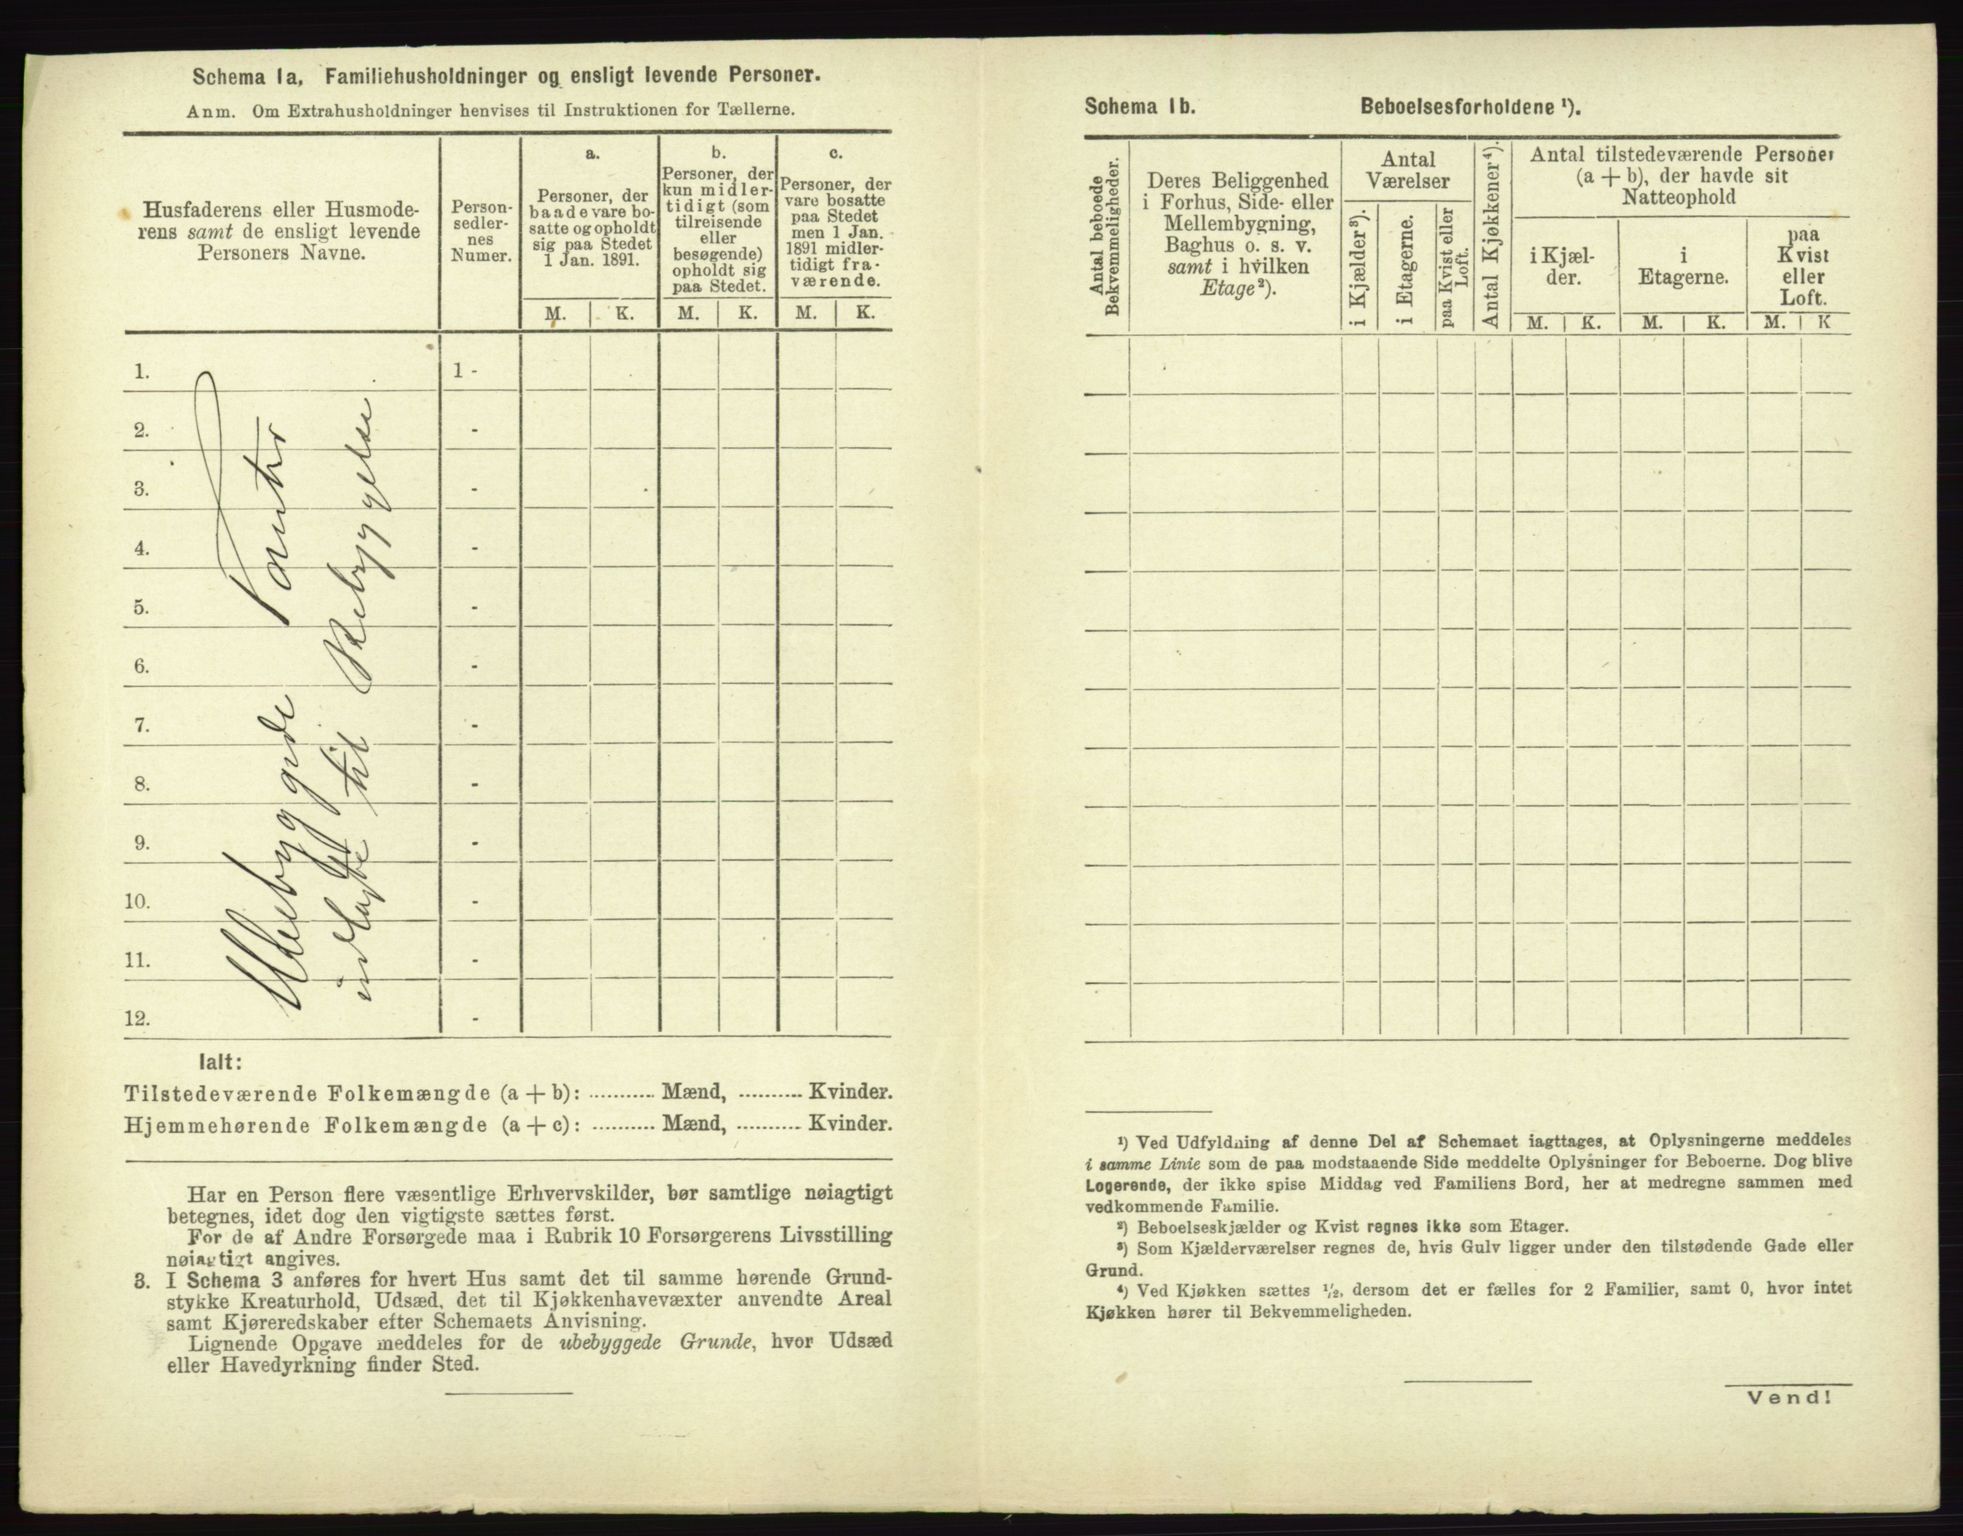 Schema 1a, Familiehusholdninger og ensligt levende Personer.
Anm. Om Extrahusholdninger henvises til Instruktionen for Tællerne.
Husfaderens eller Husmode-
rens samt de ensligt levende
Personers Navne.
Person-
sedler-
nes
Numer.
a.
Personer, der
baade vare bo-
satte og opholdt
sig paa Stedet
1 Jan. 1891.
b.
Personer, der
kun midler-
tidigt (som
tilreisende
eller
besøgende)
opholdt sig
paa Stedet.
c.
Personer, der
vare bosatte
paa Stedet
men 1 Jan.
1891 midler-
tidigt fra-
værende.
M. K. M. K. M. K.
1. 1 -
2. -
3. -
4. -
5. -
6. -
7. -
8. -
9. -
10. -
11. -
12. -
Ubebyggede Tomter
indkjøbte til Bebyggelse
Ialt:
Tilstedeværende Folkemængde (a + b): ........... Mænd, ........... Kvinder.
Hjemmehørende Folkemængde (a + c): ........... Mænd, ........... Kvinder.
Har en Person flere væsentlige Erhvervskilder, bør samtlige nøiagtigt
betegnes, idet dog den vigtigste sættes først.
For de af Andre Forsørgede maa i Rubrik 10 Forsørgerens Livsstilling
nøiagtigt angives.
3. I Schema 3 anføres for hvert Hus samt det til samme hørende Grund-
stykke Kreaturhold, Udsæd, det til Kjøkkenhavevæxter anvendte Areal
samt Kjøreredskaber efter Schemaets Anvisning.
Lignende Opgave meddeles for de ubebyggede Grunde, hvor Udsæd
eller Havedyrkning finder Sted.
Schema 1b. Beboelsesforholdene ¹).
Antal beboede
Bekvemmeligheder.
Deres Beliggenhed
i Forhus, Side- eller
Mellembygning,
Baghus o. s. v.
samt i hvilken
Etage²).
Antal
Værelser
i Kjælder³).
i Etagerne.
paa Kvist eller
Loft.
Antal Kjøkkener⁴).
Antal tilstedeværende Personer
(a + b), der havde sit
Natteophold
i Kjæl-
der.
i
Etagerne.
paa
Kvist
eller
Loft.
M. K. M. K. M. K
¹) Ved Udfyldning af denne Del af Schemaet iagttages, at Oplysningerne meddeles
i samme Linie som de paa modstaaende Side meddelte Oplysninger for Beboerne. Dog blive
Logerende, der ikke spise Middag ved Familiens Bord, her at medregne sammen med
vedkommende Familie.
²) Beboelseskjælder og Kvist regnes ikke som Etager.
³) Som Kjælderværelser regnes de, hvis Gulv ligger under den tilstødende Gade eller
Grund.
⁴) Ved Kjøkken sættes ½, dersom det er fælles for 2 Familier, samt 0, hvor intet
Kjøkken hører til Bekvemmeligheden.
Vend!